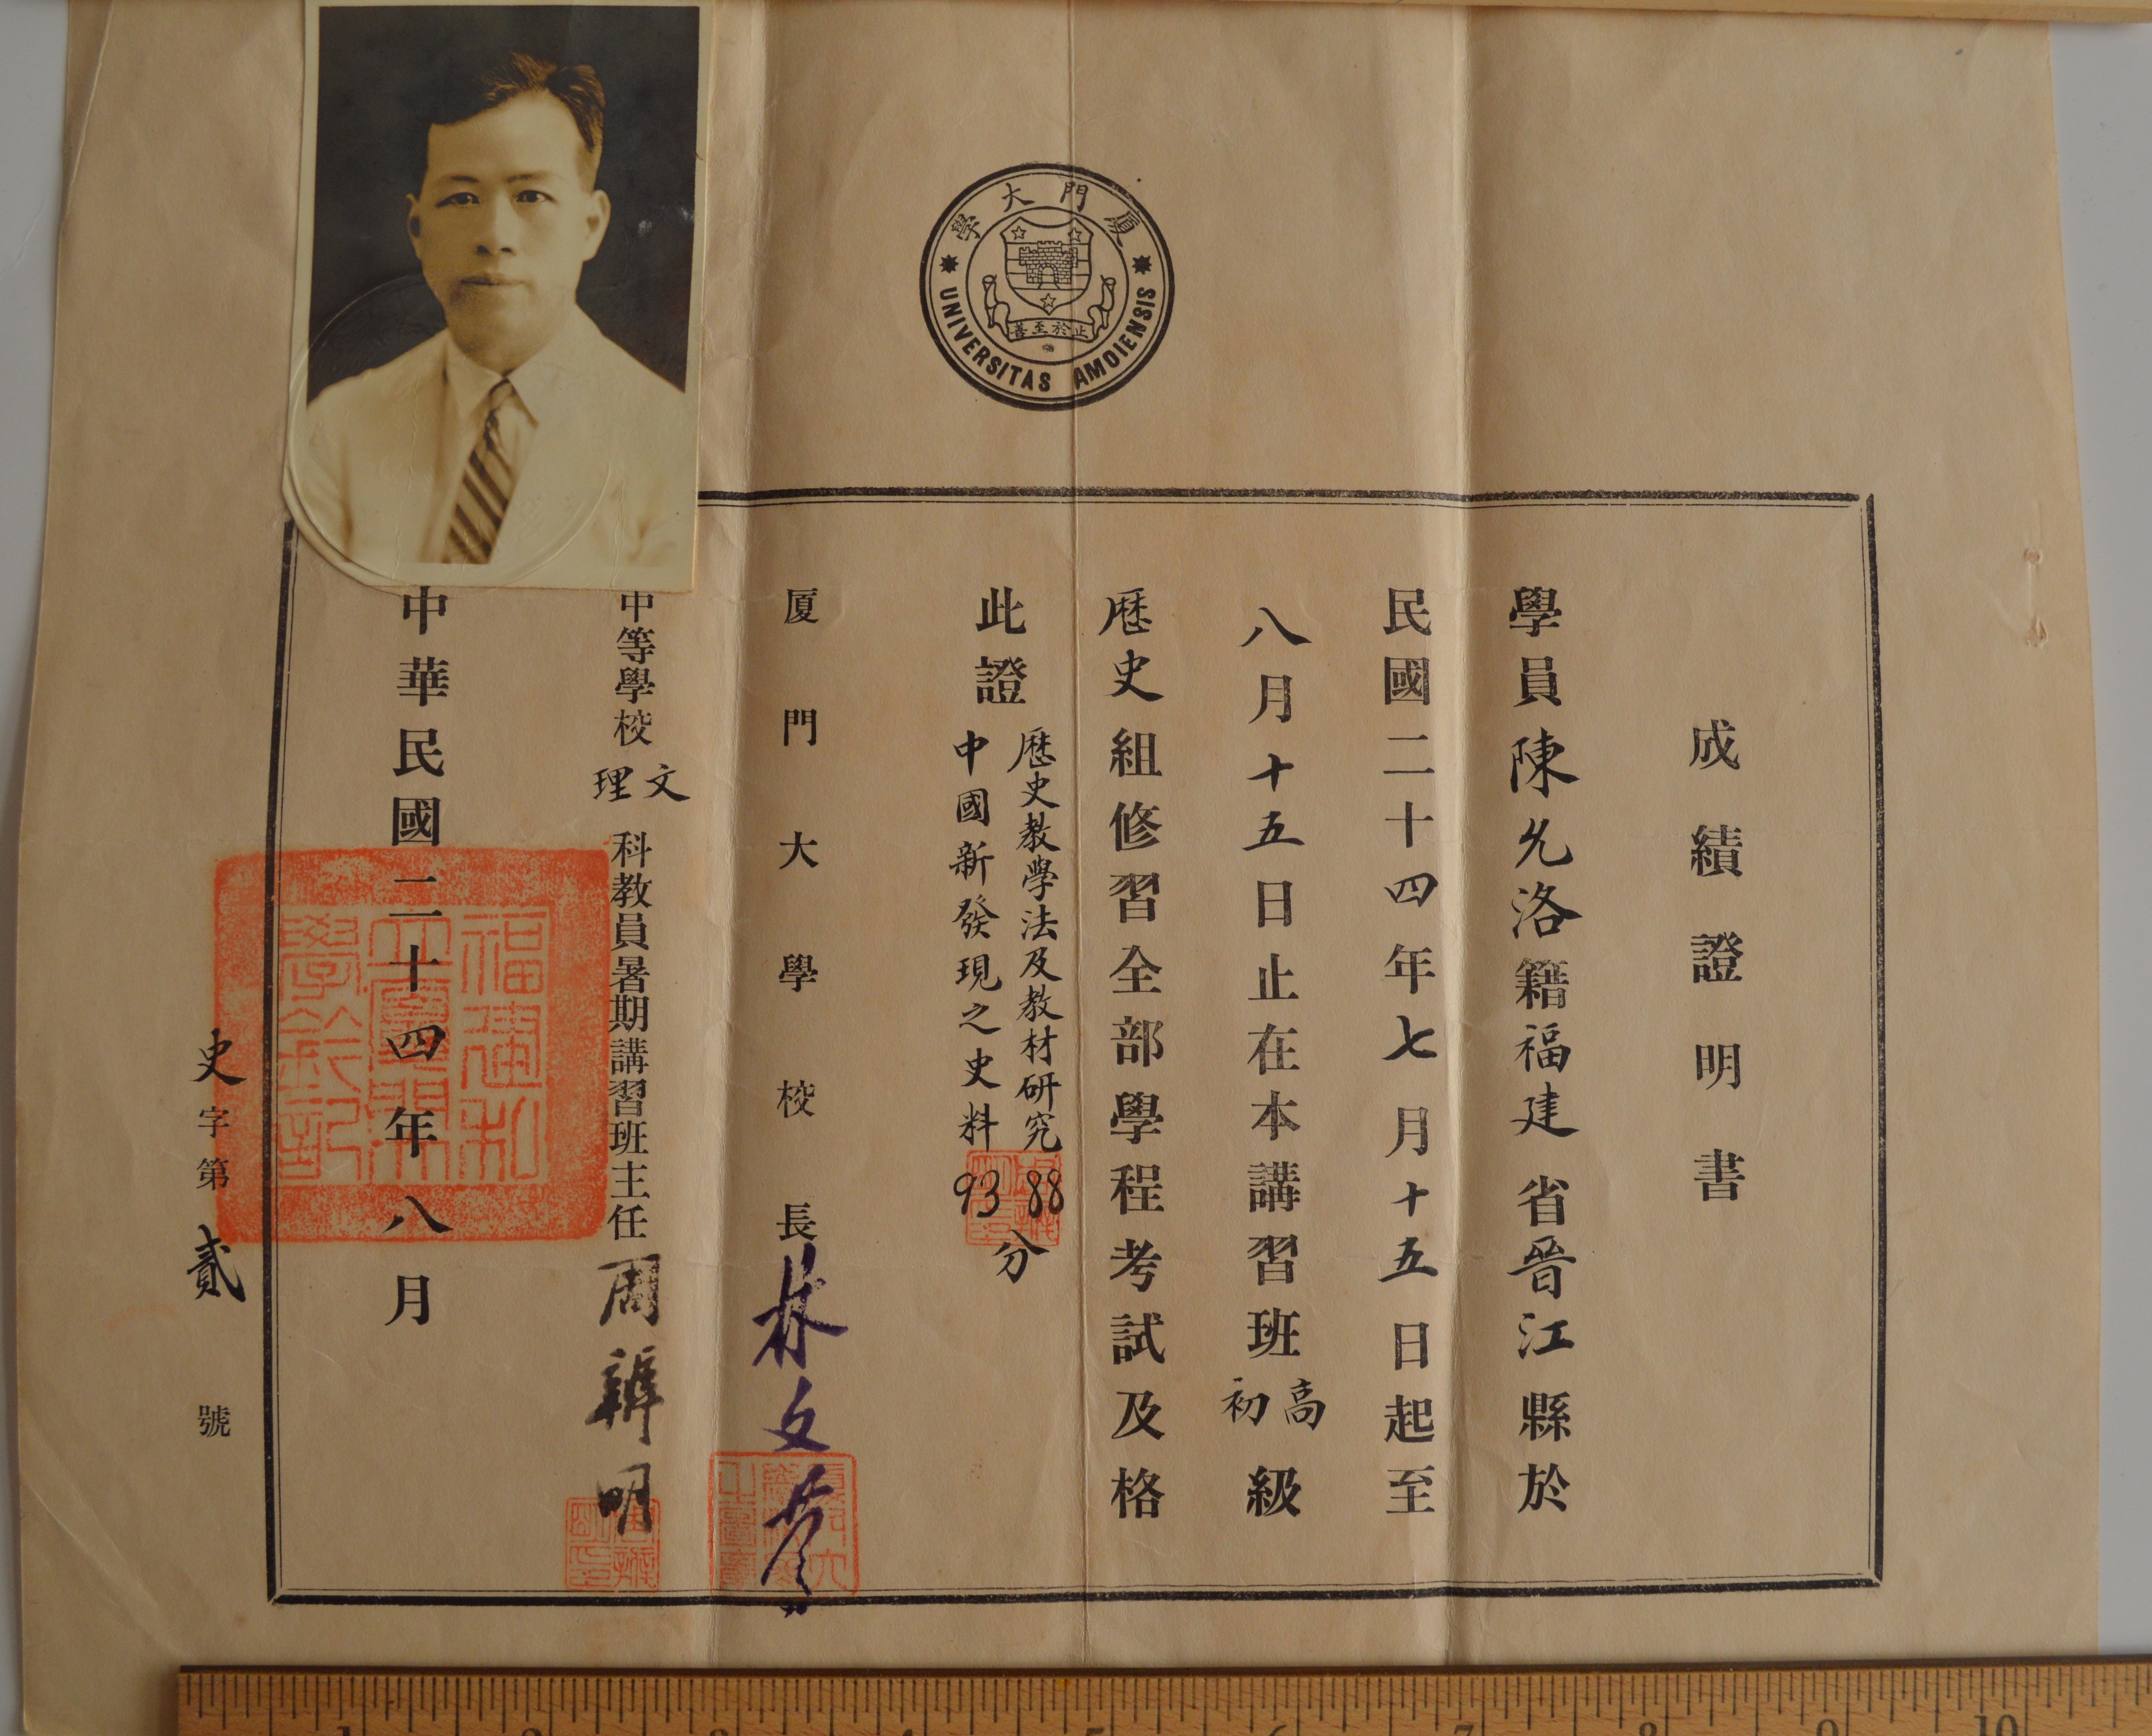 厦門大學
UNIVERSITAS AMOIENSIS
止於至善
成績證明書
學員陳允洛籍福建省晉江縣於
民國二十四年七月十五日起至
八月十五日止在本講習班高初級
歷史組修習全部學程考試及格
此證
歷史教學法及教材研究 88
中國新發現之史料 93
分
厦門大學校長林文慶
中等學校文理科教員暑期講習班主任周辨明
中華民國二十四年八月
史字第貳號
福建私立廈門大學鈐記
1 2 3 4 5 6 7 8 9 10